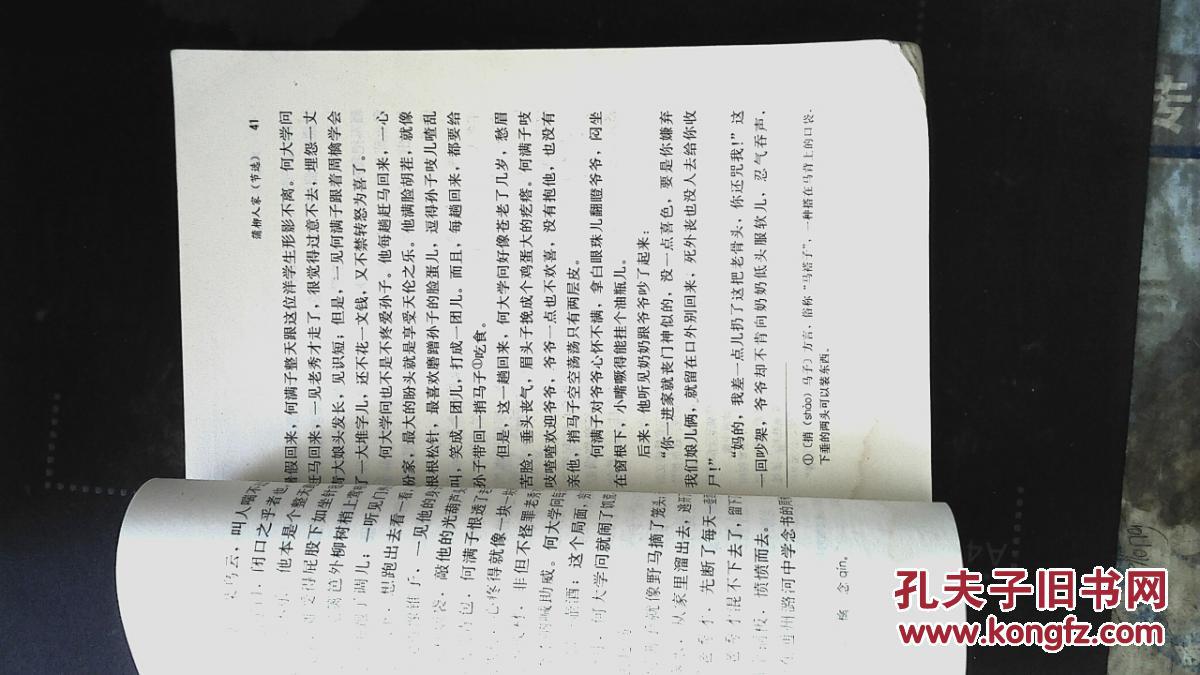 蒲柳人家（节选） 41
暑假回来，何满子整天跟这位洋学生形影不离。何大学问
赶马回来，一见老秀才走了，很觉得过意不去，埋怨一丈
青大娘头发长，见识短；但是，一见何满子跟着周檎学会
了一大堆字儿，还不花一文钱，又不禁转怒为喜了。
何大学问也不是不疼爱孙子。他每趟赶马回来，一心
盼家，最大的盼头就是享受天伦之乐。他满脸胡茬，就像
根根松针，最喜欢磨蹭孙子的脸蛋儿，逗得孙子吱儿喳乱
叫，笑成一团儿，打成一团儿。而且，每趟回来，都要给
孙子带回一捎马子①吃食。
但是，这一趟回来，何大学问好像苍老了几岁，愁眉
苦脸，垂头丧气，眉头子挽成个鸡蛋大的疙瘩。何满子吱
吱喳喳欢迎爷爷，爷爷一点也不欢喜，没有抱他，也没有
亲他，捎马子空空荡荡只有两层皮。
何满子对爷爷心怀不满，拿白眼珠儿翻瞪爷爷，闷坐
在窗根下，小嘴噘得能挂个油瓶儿。
后来，他听见奶奶跟爷爷吵了起来：
“你一进家就丧门神似的，没一点喜色，要是你嫌弃
我们娘儿俩，就留在口外别回来，死外丧也没人去给你收
尸！”
“妈的，我差一点儿扔了这把老骨头，你还咒我！”这
一回吵架，爷爷却不肯向奶奶低头服软儿，忍气吞声，
①〔捎（shào）马子〕方言，俗称“马褡子”，一种搭在马背上的口袋，
下垂的两头可以装东西。
叫人喘不
闭口之乎者也
他本是个整天
屁股下如坐针
篱笆外柳树梢上
一听见
想跑出去看一看
一见他的身
敲他的光葫芦
何满子恨透了
心疼得就像一块一块
非但不怪罪老秀
喊助威。何大学问每
这个局面，
何大学问就闹了饥
就像野马摘了笼头
从家里溜出去，逃
先断了每天一
混不下去了，留下
愤愤而去。
潞河中学念书的周
檎 念 qín。
孔夫子旧书网
www.kongfz.com